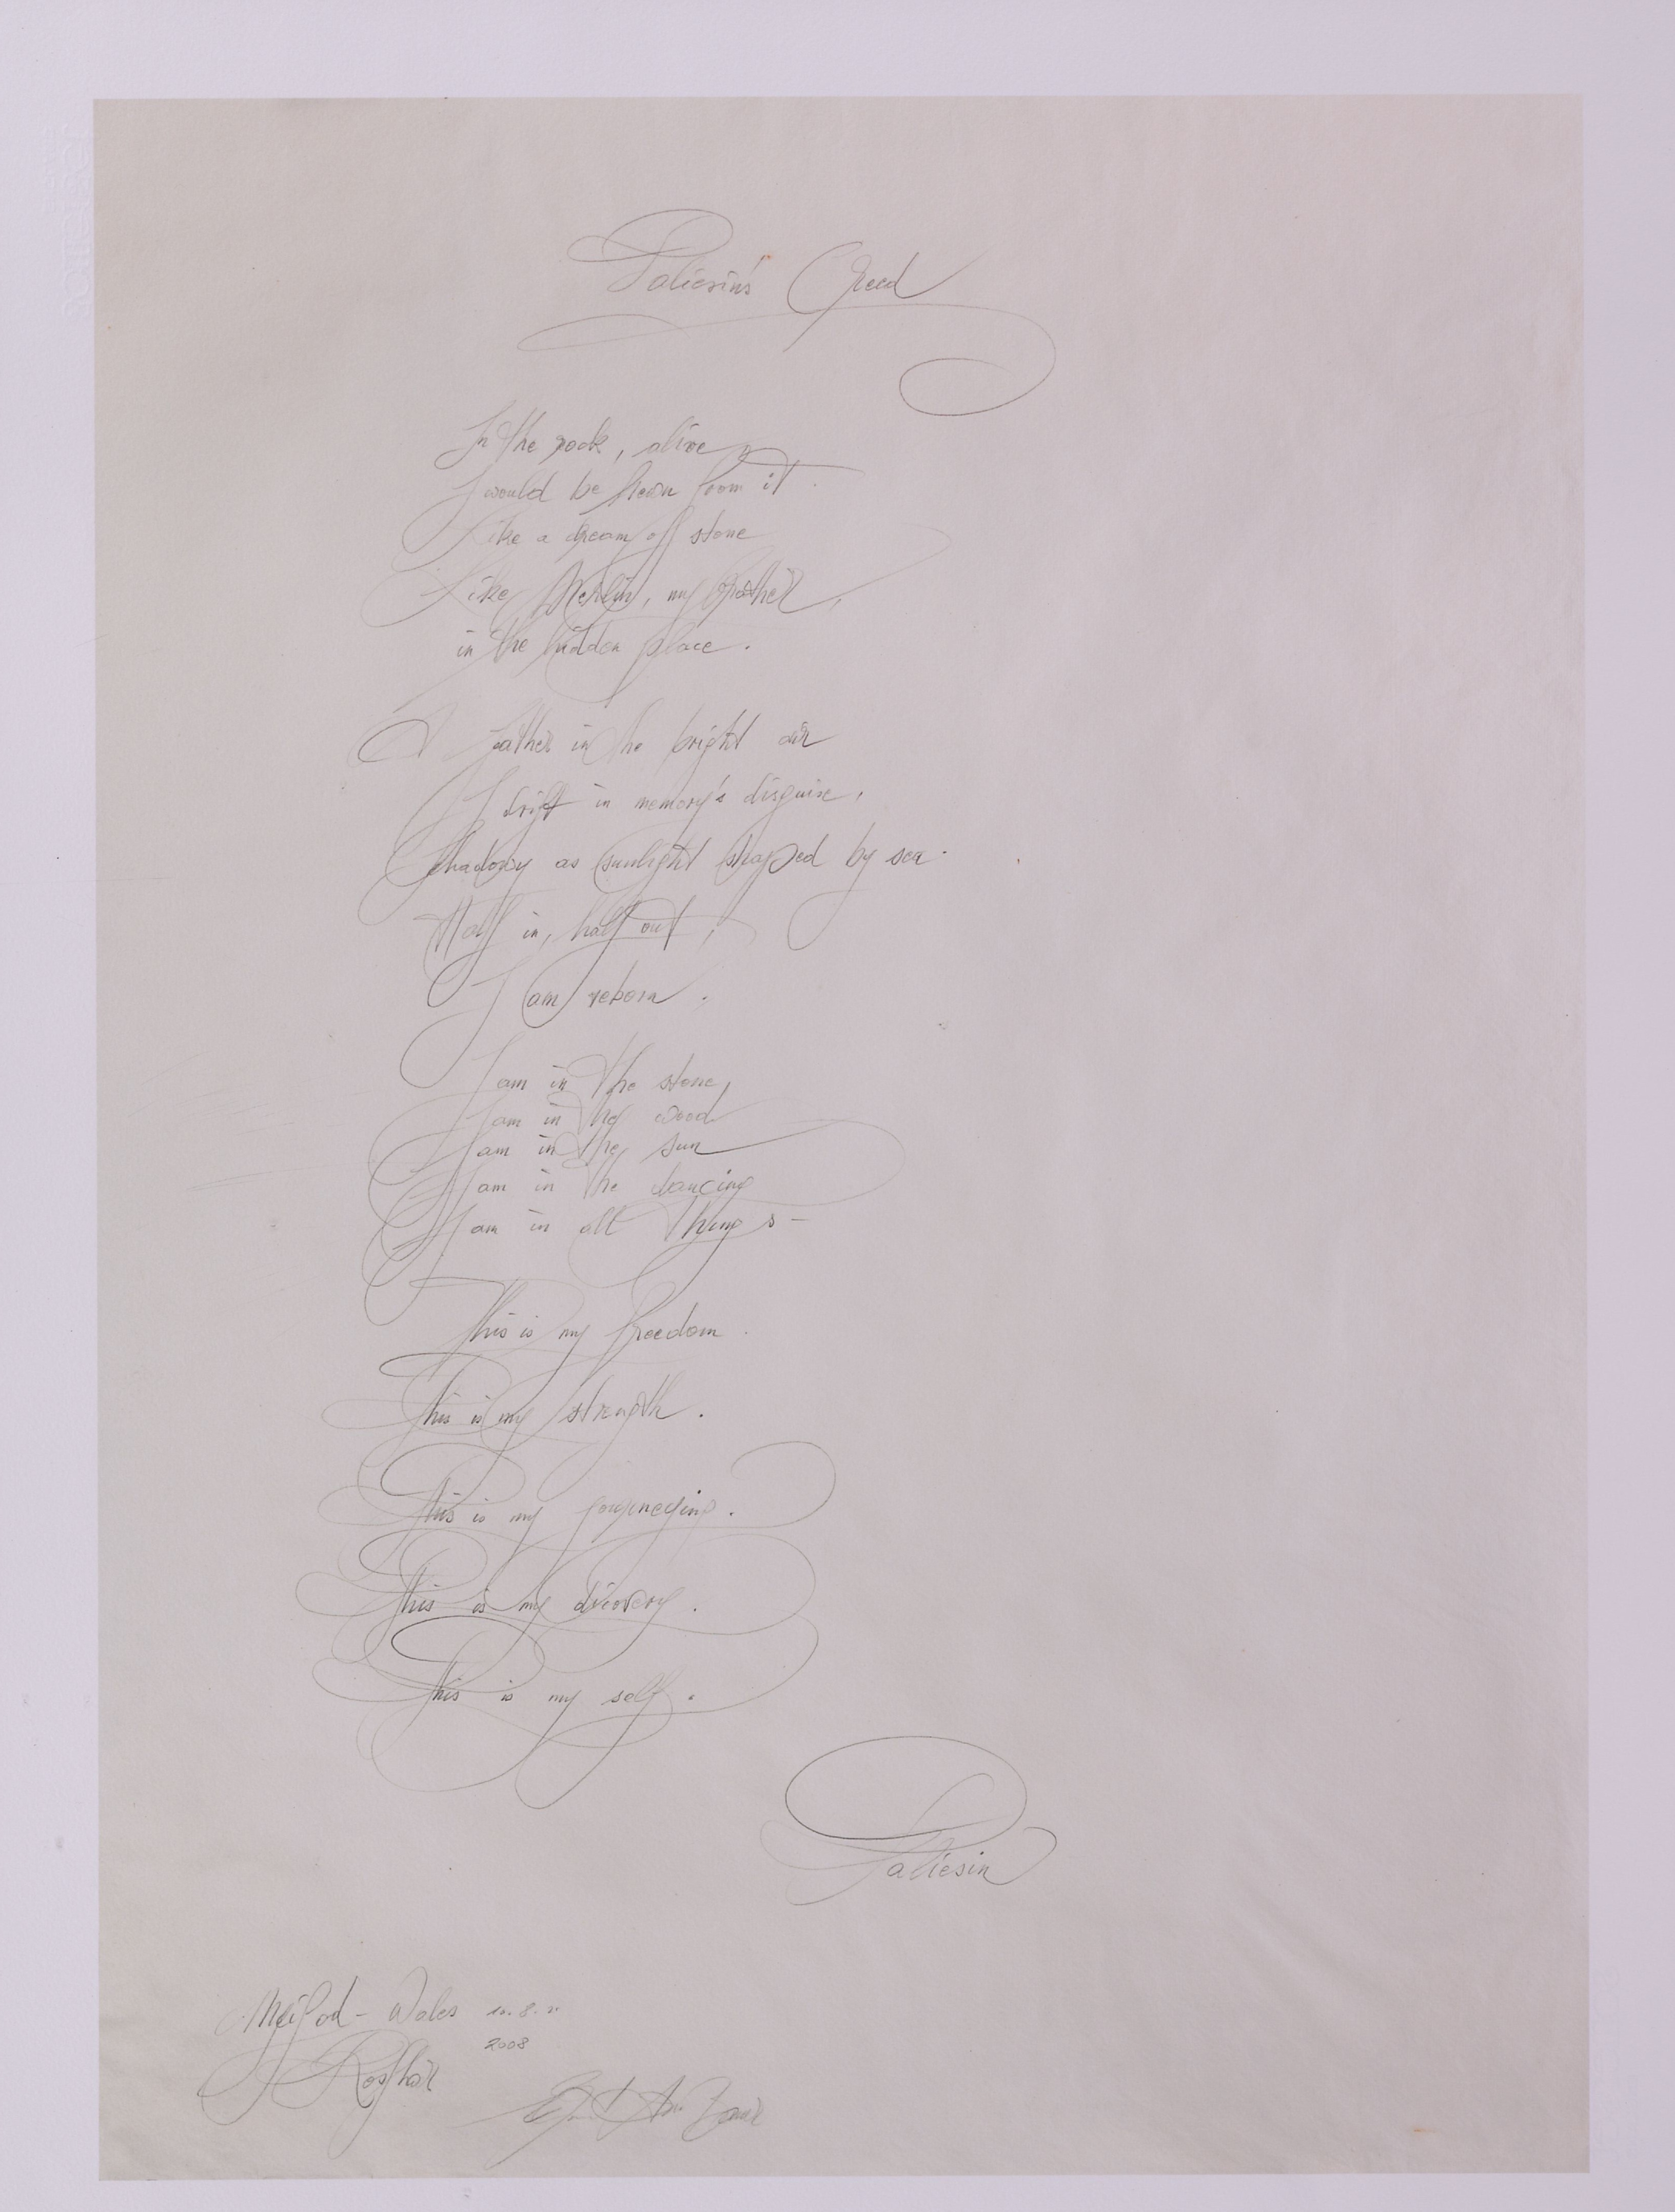 Taliesin's Creed
In the rock, alive
I would be hewn from it
Like a dream of stone
Like Merlin, my brother,
in the hidden place.
A feather in the bright air
I drift in memory's disguise,
Shadowy as sunlight shaped by sea.
Half in, half out,
I am reborn.
I am in the stone,
I am in the wood
I am in the sun
I am in the dancing
I am in all things –
This is my freedom.
This is my strength.
This is my journeying.
This is my dicovery.
This is my self.
Taliesin
Meifod - Wales
2008